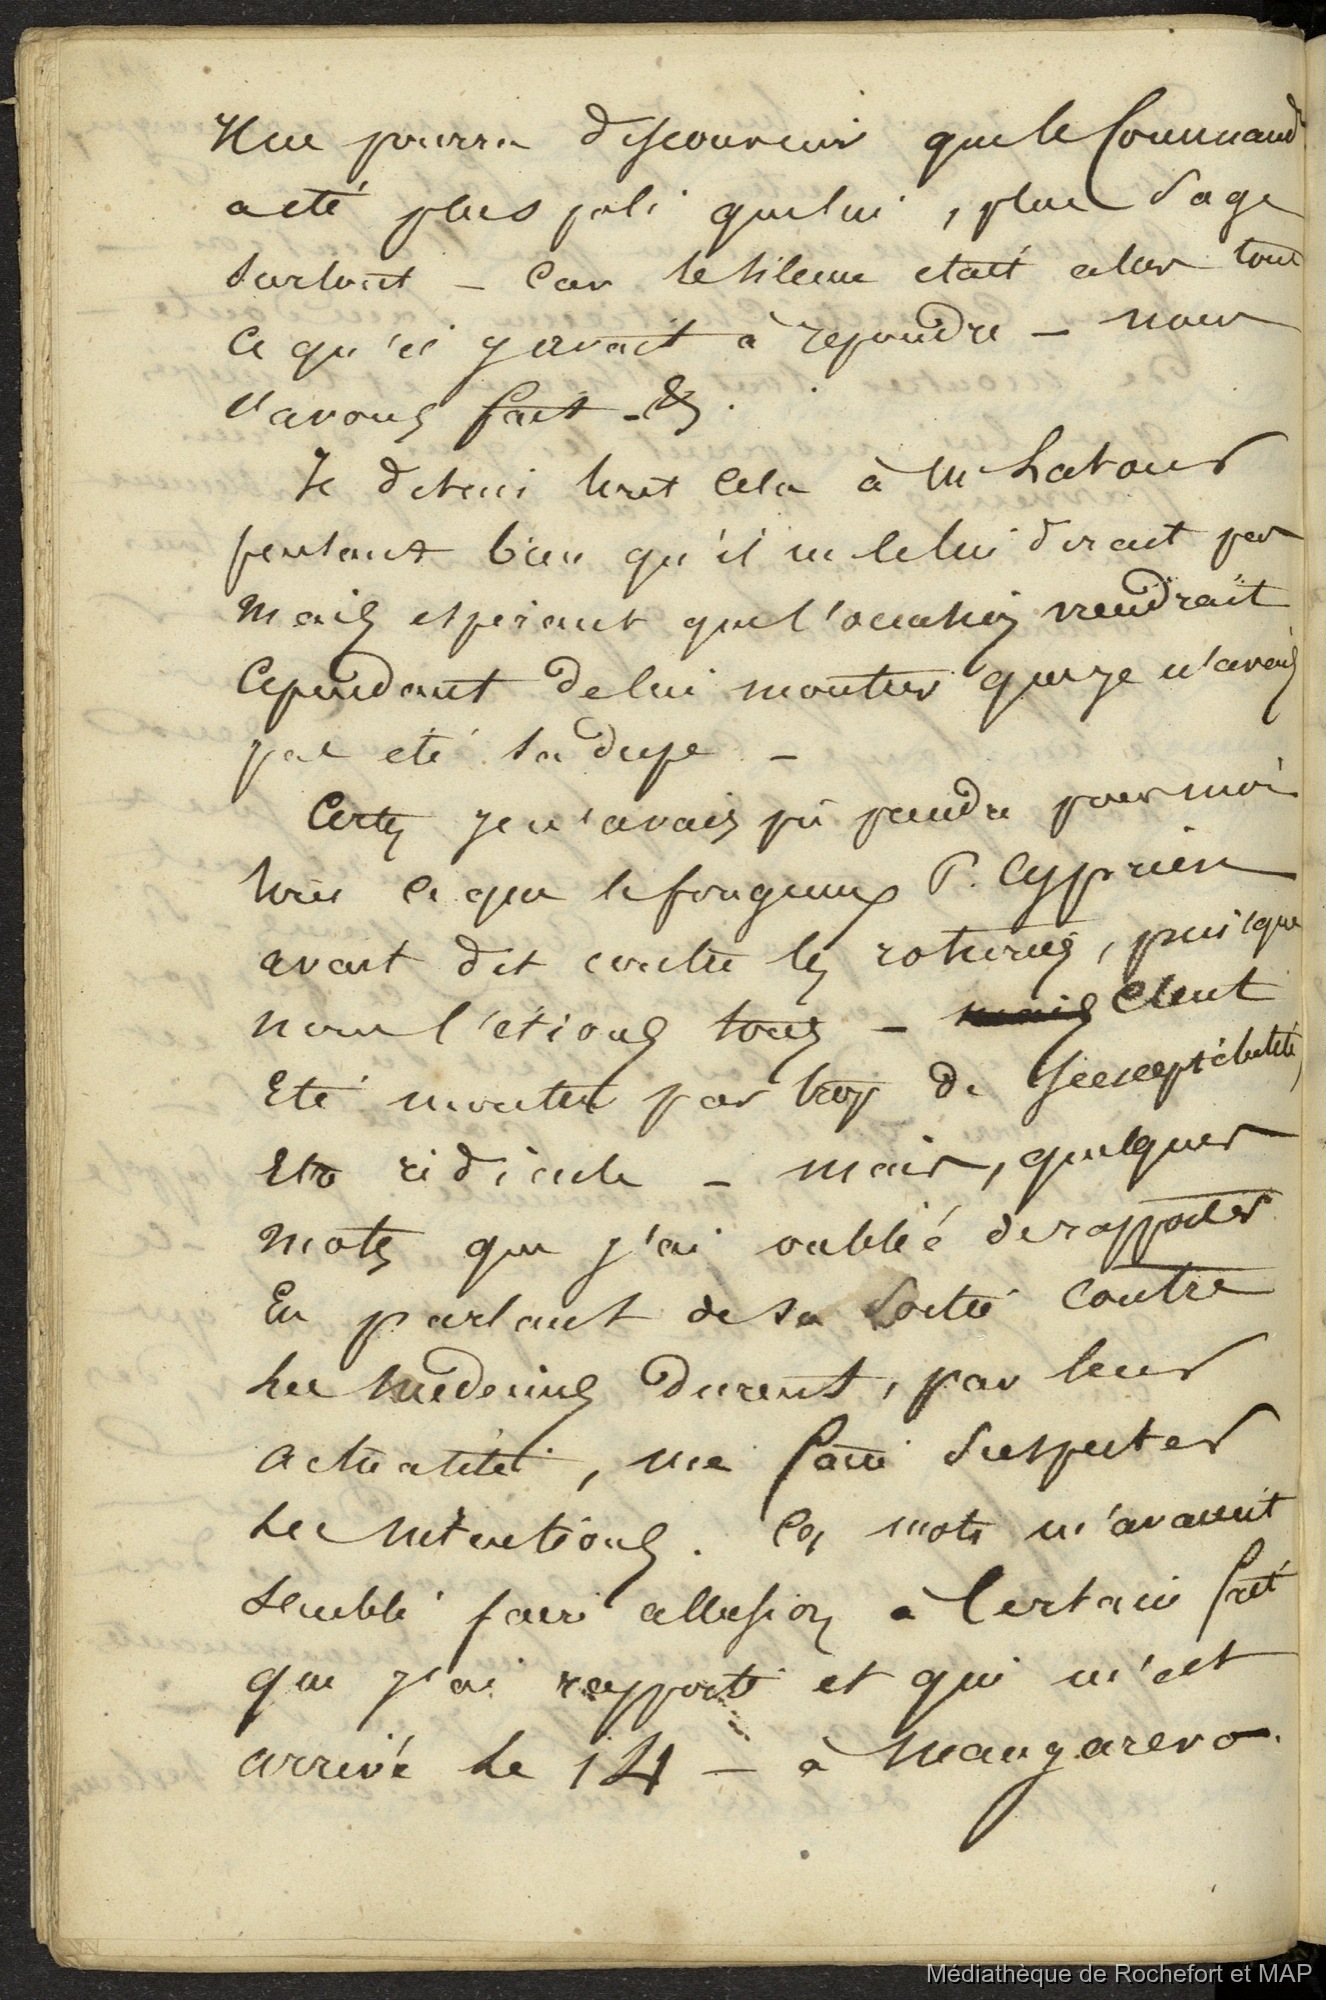 Il ne pourra disconvenir que le Command
a été plus poli que lui, plus sage
surtout – car le silence était alors tout
ce qu'il y avait à repondre – nous
l'avons fait – &.
Je detaci tout cela à Mr Latour
pensant bien qu'il ne le lui dirait pas
mais esperant que l'occasion viendrait
Cependant de lui montrer que je n'avais
pas eté sa dupe –
Certes je n'avais pû prendre pour moi
tout ce que le fougueux P. Cyprien
avait dit contre les roturiers, puisque
nous l'étions tous – C'eut
eté montrer par trop de susceptibilité
etre ridicule – mais, quelques
mots que j'ai oublié de rapporter
En parlant de sa sortie contre
les medecins durent, par leur
actualité, me faire suspecter
ses intentions. Ces mots m'avaient
semblé faire allusion à Certain fait
que j'ai rapporté et qui m'est
arrivé le 14 – à Mangareva.
Médiathèque de Rochefort et MAP